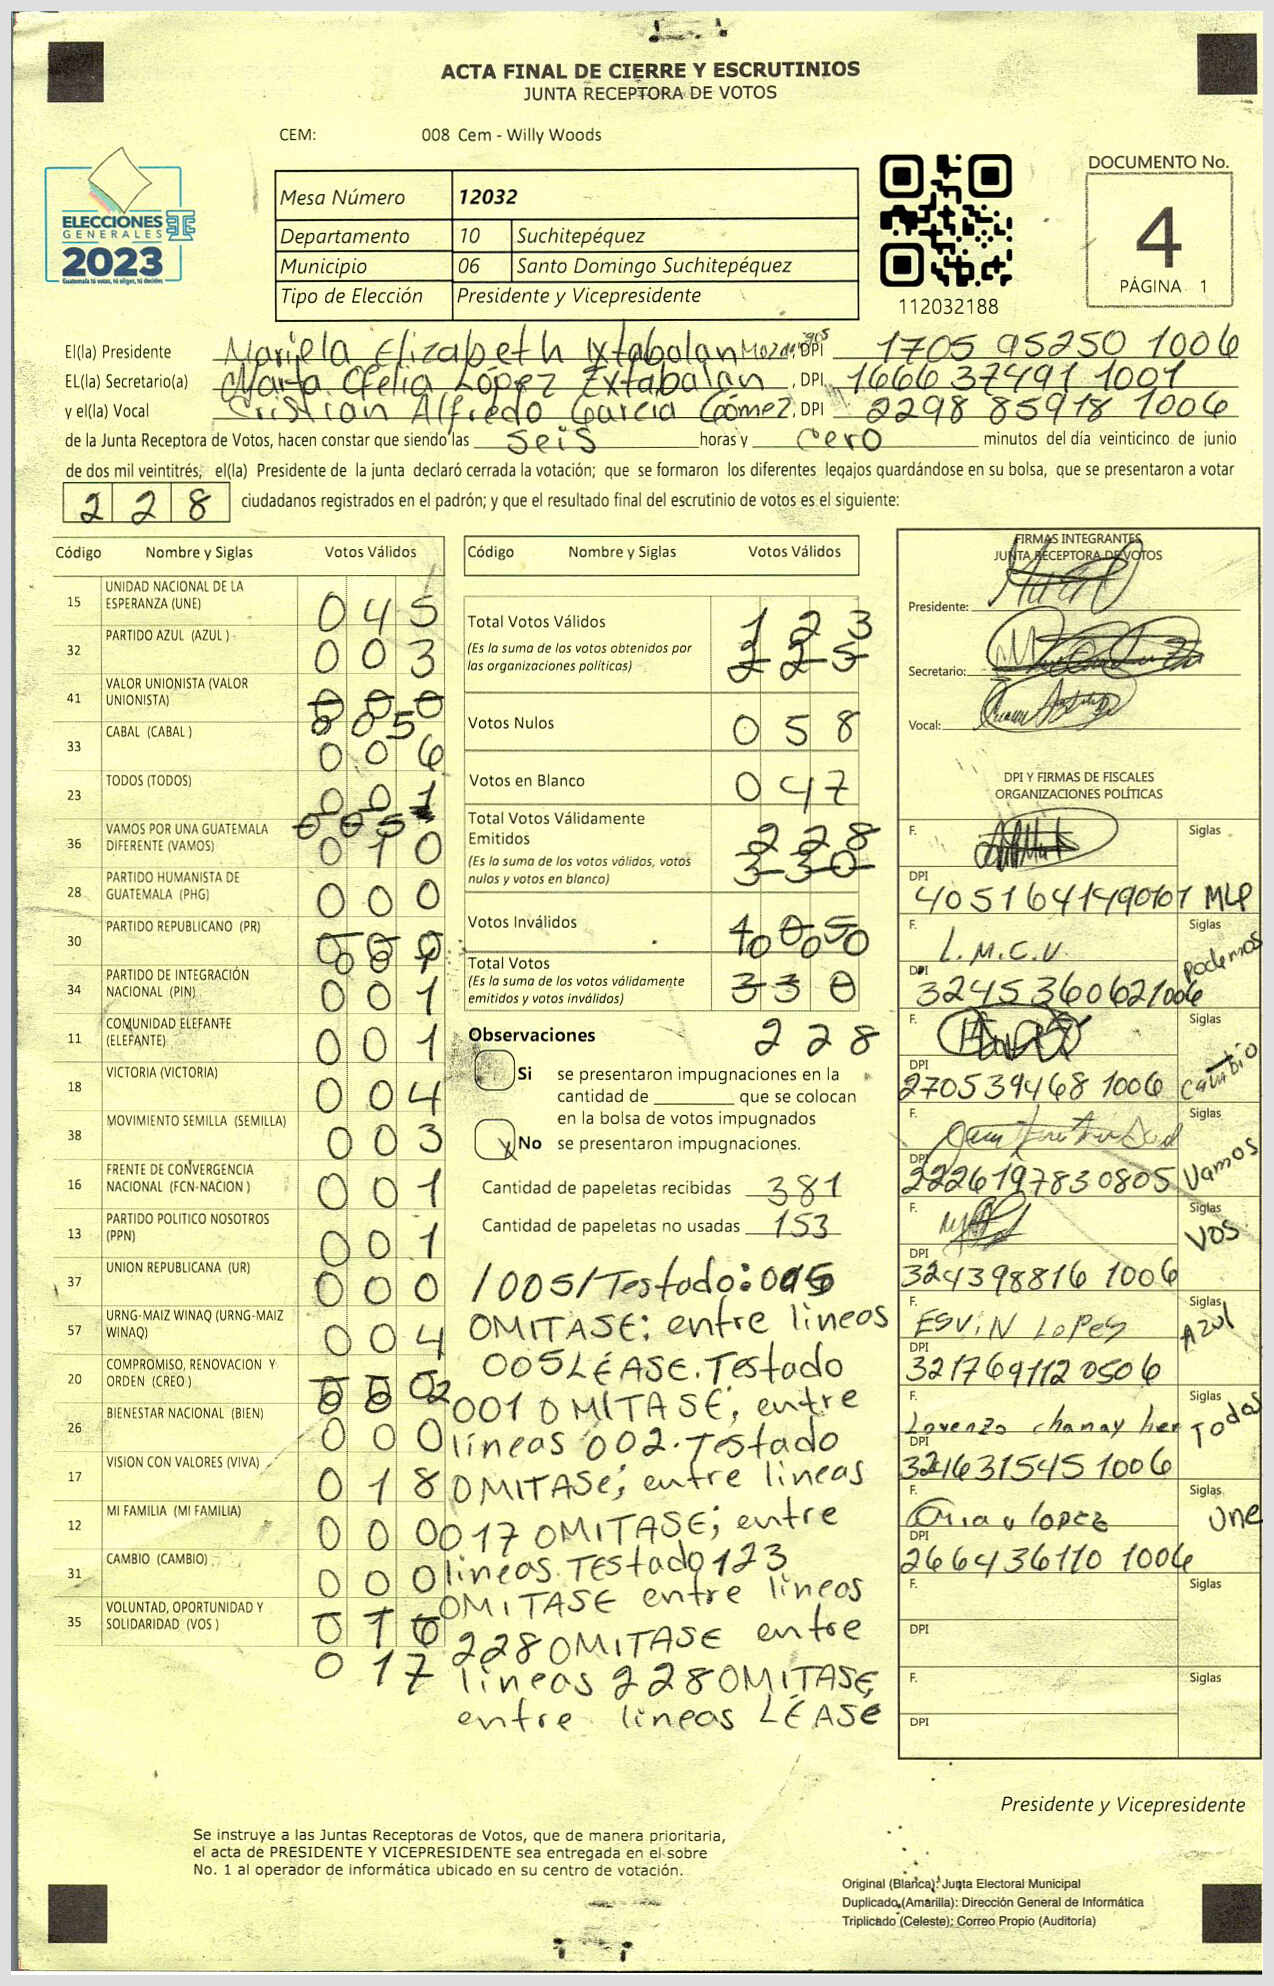 ACTA FINAL DE CIERRE Y ESCRUTINIOS
JUNTA RECEPTORA DE VOTOS
CEM: 008 Cem - Willy Woods
ELECCIONES
GENERALES
2023
Guatemala tú votas, tú eliges, tú decides
Mesa Número 12032
Departamento 10 Suchitepéquez
Municipio 06 Santo Domingo Suchitepéquez
Tipo de Elección Presidente y Vicepresidente
112032188
DOCUMENTO No.
4
PÁGINA 1
El(la) Presidente Mariela Elizabeth Ixtabalan , DPI 1705 95250 1006
EL(la) Secretario(a) Marta Ofelia López Extabalán , DPI 1666 37491 1001
y el(la) Vocal Cristian Alfredo Garcia Gómez , DPI 2298 85918 1006
de la Junta Receptora de Votos, hacen constar que siendo las seis horas y cero minutos del día veinticinco de junio
de dos mil veintitrés, el(la) Presidente de la junta declaró cerrada la votación; que se formaron los diferentes legajos guardándose en su bolsa, que se presentaron a votar
228 ciudadanos registrados en el padrón; y que el resultado final del escrutinio de votos es el siguiente:
Código Nombre y Siglas Votos Válidos
15 UNIDAD NACIONAL DE LA ESPERANZA (UNE) 045
32 PARTIDO AZUL (AZUL ) 003
41 VALOR UNIONISTA (VALOR UNIONISTA) 000
005
33 CABAL (CABAL ) 006
23 TODOS (TODOS) 001
36 VAMOS POR UNA GUATEMALA DIFERENTE (VAMOS) 010
28 PARTIDO HUMANISTA DE GUATEMALA (PHG) 000
30 PARTIDO REPUBLICANO (PR)
34 PARTIDO DE INTEGRACIÓN NACIONAL (PIN) 001
11 COMUNIDAD ELEFANTE (ELEFANTE) 001
18 VICTORIA (VICTORIA) 004
38 MOVIMIENTO SEMILLA (SEMILLA) 003
16 FRENTE DE CONVERGENCIA NACIONAL (FCN-NACION ) 001
13 PARTIDO POLITICO NOSOTROS (PPN) 001
37 UNION REPUBLICANA (UR) 000
57 URNG-MAIZ WINAQ (URNG-MAIZ WINAQ) 004
20 COMPROMISO, RENOVACION Y ORDEN (CREO ) 002
26 BIENESTAR NACIONAL (BIEN) 000
17 VISION CON VALORES (VIVA) 018
12 MI FAMILIA (MI FAMILIA) 000
31 CAMBIO (CAMBIO) 000
35 VOLUNTAD, OPORTUNIDAD Y SOLIDARIDAD (VOS ) 016
017
Código Nombre y Siglas Votos Válidos
Total Votos Válidos 123
(Es la suma de los votos obtenidos por las organizaciones políticas) 225
Votos Nulos 058
Votos en Blanco 047
Total Votos Válidamente Emitidos 228
(Es la suma de los votos válidos, votos nulos y votos en blanco) 330
Votos Inválidos
Total Votos
(Es la suma de los votos válidamente emitidos y votos inválidos) 330
228
Observaciones
Si se presentaron impugnaciones en la
cantidad de ________ que se colocan
en la bolsa de votos impugnados
X No se presentaron impugnaciones.
Cantidad de papeletas recibidas 381
Cantidad de papeletas no usadas 153
/005/Testado:
OMITASE: entre lineos
005 LÉASE. Testado
001 OMITASE; entre
líneas 002. Testado
OMITASE; entre lineas
017 OMITASE; entre
lineas Testado 123
OMITASE entre lineos
228 OMITASE entre
lineas 228 OMITASE,
entre lineas LÉASE
FIRMAS INTEGRANTES
JUNTA RECEPTORA DE VOTOS
Presidente:
Secretario:
Vocal:
DPI Y FIRMAS DE FISCALES
ORGANIZACIONES POLÍTICAS
F. Siglas
DPI 4051641490101 MLP
F. L.M.C.V. Siglas
DPI 3245360621006 podemos
F. Siglas
DPI 270539468 1006 cambio
F. Siglas
DPI 2226197830805 Vamos
F. Siglas
DPI 324398816 1006 VOS
F. ESVIN LOPES Siglas
DPI 3217691120506 Azul
F. Lorenzo chanay her Siglas
DPI 321631545 1006 Todos
F. LOPEZ Siglas
DPI 266436110 1006 Une
F. Siglas
DPI
F. Siglas
DPI
Presidente y Vicepresidente
Se instruye a las Juntas Receptoras de Votos, que de manera prioritaria,
el acta de PRESIDENTE Y VICEPRESIDENTE sea entregada en el sobre
No. 1 al operador de informática ubicado en su centro de votación.
Original (Blanca): Junta Electoral Municipal
Duplicado (Amarilla): Dirección General de Informática
Triplicado (Celeste): Correo Propio (Auditoría)